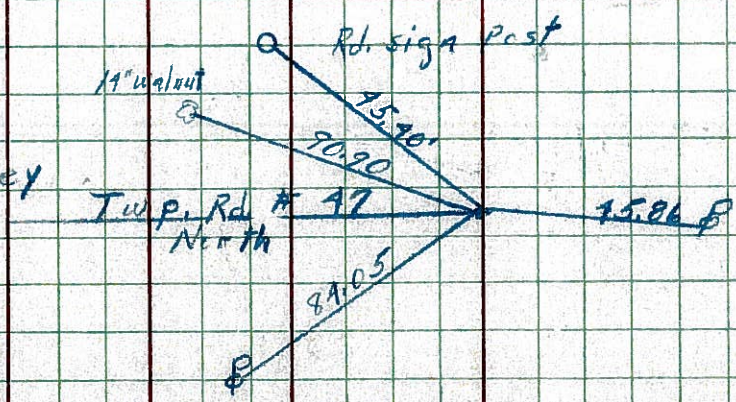 Rd. sign Post
14" walnut
45.40'
90.90
ey
Twp. Rd # 47
North
45.86
84.05